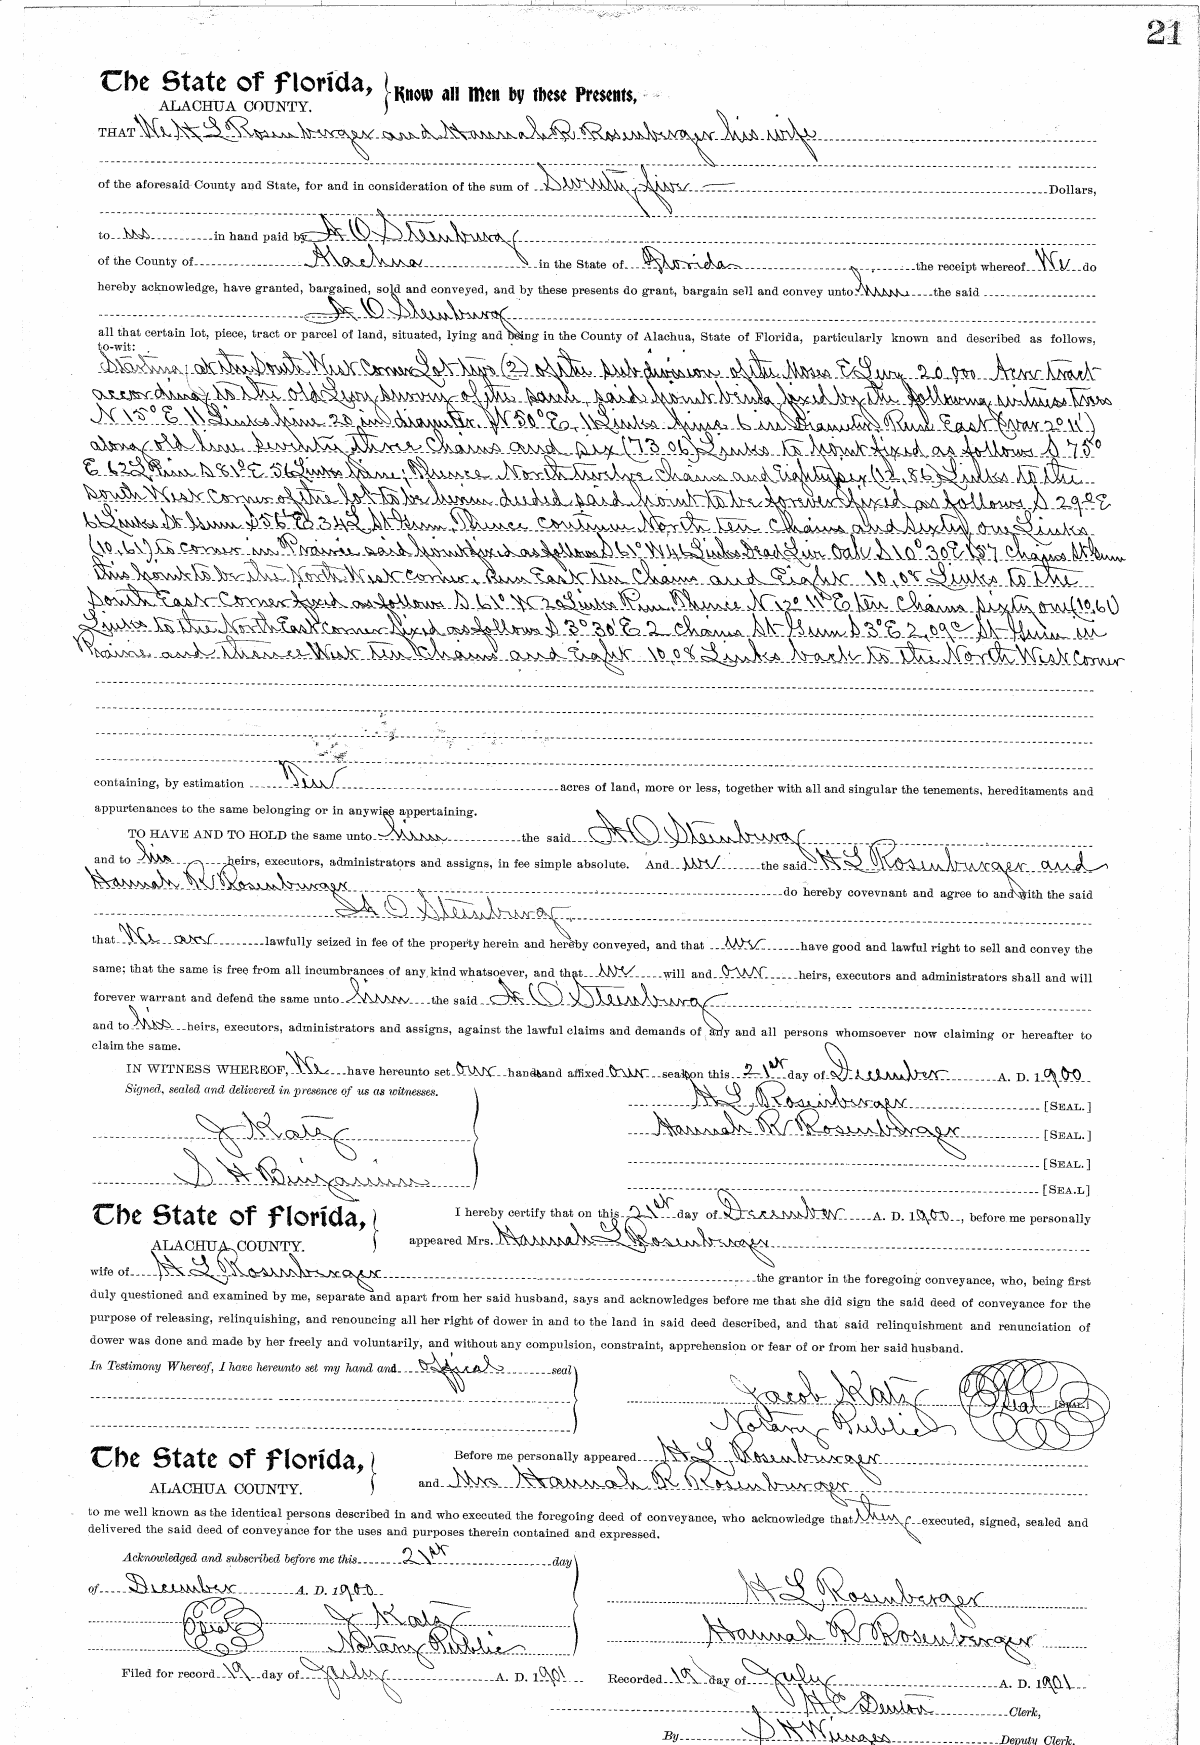 21
The State of Florida,
ALACHUA COUNTY.
Know all Men by these Presents,
THAT We H L Rosenberger and Hannah R Rosenberger his wife
of the aforesaid County and State, for and in consideration of the sum of Seventy five Dollars,
to us in hand paid by A O Steenburg
of the County of Alachua in the State of Florida the receipt whereof We do
hereby acknowledge, have granted, bargained, sold and conveyed, and by these presents do grant, bargain sell and convey unto him the said
A O Steenburg
all that certain lot, piece, tract or parcel of land, situated, lying and being in the County of Alachua, State of Florida, particularly known and described as follows,
to-wit:
Starting at the South West Corner Lot two (2) of the subdivision of the Moses E Levy 20,000 Acre tract
according to the old Levy survey of the same, said point being fixed by the following witness trees
N 15° E 11 Links pine 20 in diameter. N 50° E. 11 Links pine 6 in Diameter Run East (Var. 2° 11')
along old line seventy three Chains and six (73.06) Links to point fixed as follows S 75°
E 62 L Pine S 81° E 56 Links pine; Thence North twelve Chains and Eighty six (12.86) Links to the
South West Corner of the lot to be herein deeded said point to be forever fixed as follows S 29° E
Links St Gum S 56° E 34 L St Gum. Thence continue North ten Chains and Sixty one Links
(10,61) to corner in Prairie said point fixed as follows S 61° W 46 Links Dead Live Oak S 10° 30' E 1.87 Chains St Gum
this point to be the North West corner. Run East ten Chains and Eight 10,08 Links to the
South East Corner fixed as follows S 61° W 20 Links Pine Thence N 12° 11' E ten Chains sixty one (10,61)
Links to the North East corner fixed as follows S 3° 30' E 2 Chains St Gum S 3° E 2,09 C St Gum in
Prairie and thence West ten Chains and Eight 10,08 Links back to the North West corner
containing, by estimation Ten acres of land, more or less, together with all and singular the tenements, hereditaments and
appurtenances to the same belonging or in anywise appertaining.
TO HAVE AND TO HOLD the same unto him the said A O Steenburg
and to his heirs, executors, administrators and assigns, in fee simple absolute. And we the said H L Rosenburger and
Hannah R Rosenburger do hereby covevnant and agree to and with the said
A O Steenburg
that We are lawfully seized in fee of the property herein and hereby conveyed, and that we have good and lawful right to sell and convey the
same; that the same is free from all incumbrances of any kind whatsoever, and that we will and our heirs, executors and administrators shall and will
forever warrant and defend the same unto him the said A O Steenburg
and to his heirs, executors, administrators and assigns, against the lawful claims and demands of any and all persons whomsoever now claiming or hereafter to
claim the same.
IN WITNESS WHEREOF, We have hereunto set our hands and affixed our seals on this 21st day of December A. D. 1900
Signed, sealed and delivered in presence of us as witnesses.
H L Rosenberger [SEAL.]
J Katz
Hannah R Rosenberger [SEAL.]
[SEAL.]
S H Benjamin
[SEA.L]
The State of Florida,
ALACHUA COUNTY.
I hereby certify that on this 21st day of December A. D. 1900, before me personally
appeared Mrs. Hannah L Rosenberger
wife of H L Rosenberger the grantor in the foregoing conveyance, who, being first
duly questioned and examined by me, separate and apart from her said husband, says and acknowledges before me that she did sign the said deed of conveyance for the
purpose of releasing, relinquishing, and renouncing all her right of dower in and to the land in said deed described, and that said relinquishment and renunciation of
dower was done and made by her freely and voluntarily, and without any compulsion, constraint, apprehension or fear of or from her said husband.
In Testimony Whereof, I have hereunto set my hand and offical seal
Jacob Katz Seal [SEAL.]
Notary Public
The State of Florida,
ALACHUA COUNTY.
Before me personally appeared H L Rosenburger
and Mrs Hannah R Rosenburger
to me well known as the identical persons described in and who executed the foregoing deed of conveyance, who acknowledge that they executed, signed, sealed and
delivered the said deed of conveyance for the uses and purposes therein contained and expressed.
Acknowledged and subscribed before me this 21st day
of December A. D. 1900
H L Rosenberger
Seal J Katz
Hannah R Rosenberger
Notary Public
Filed for record 19 day of July A. D. 1901 Recorded 19 day of July A. D. 1901
H C Denton Clerk,
By S H Wienges Deputy Clerk.